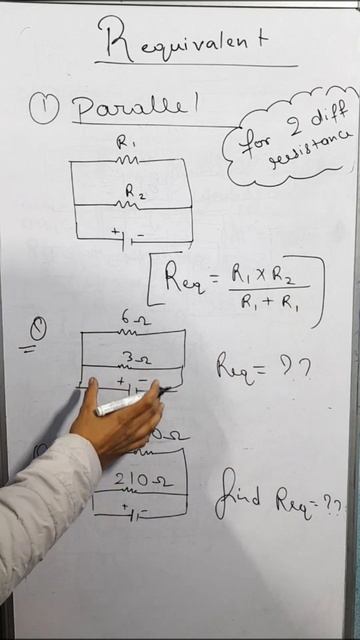 Requivalent
① Parallel
for 2 diff
resistance
R1
R2
+ -
Req = R1 × R2
R1 + R1
①
6Ω
3Ω
Req = ??
+ -
0Ω
210Ω
find Req = ??
+ -